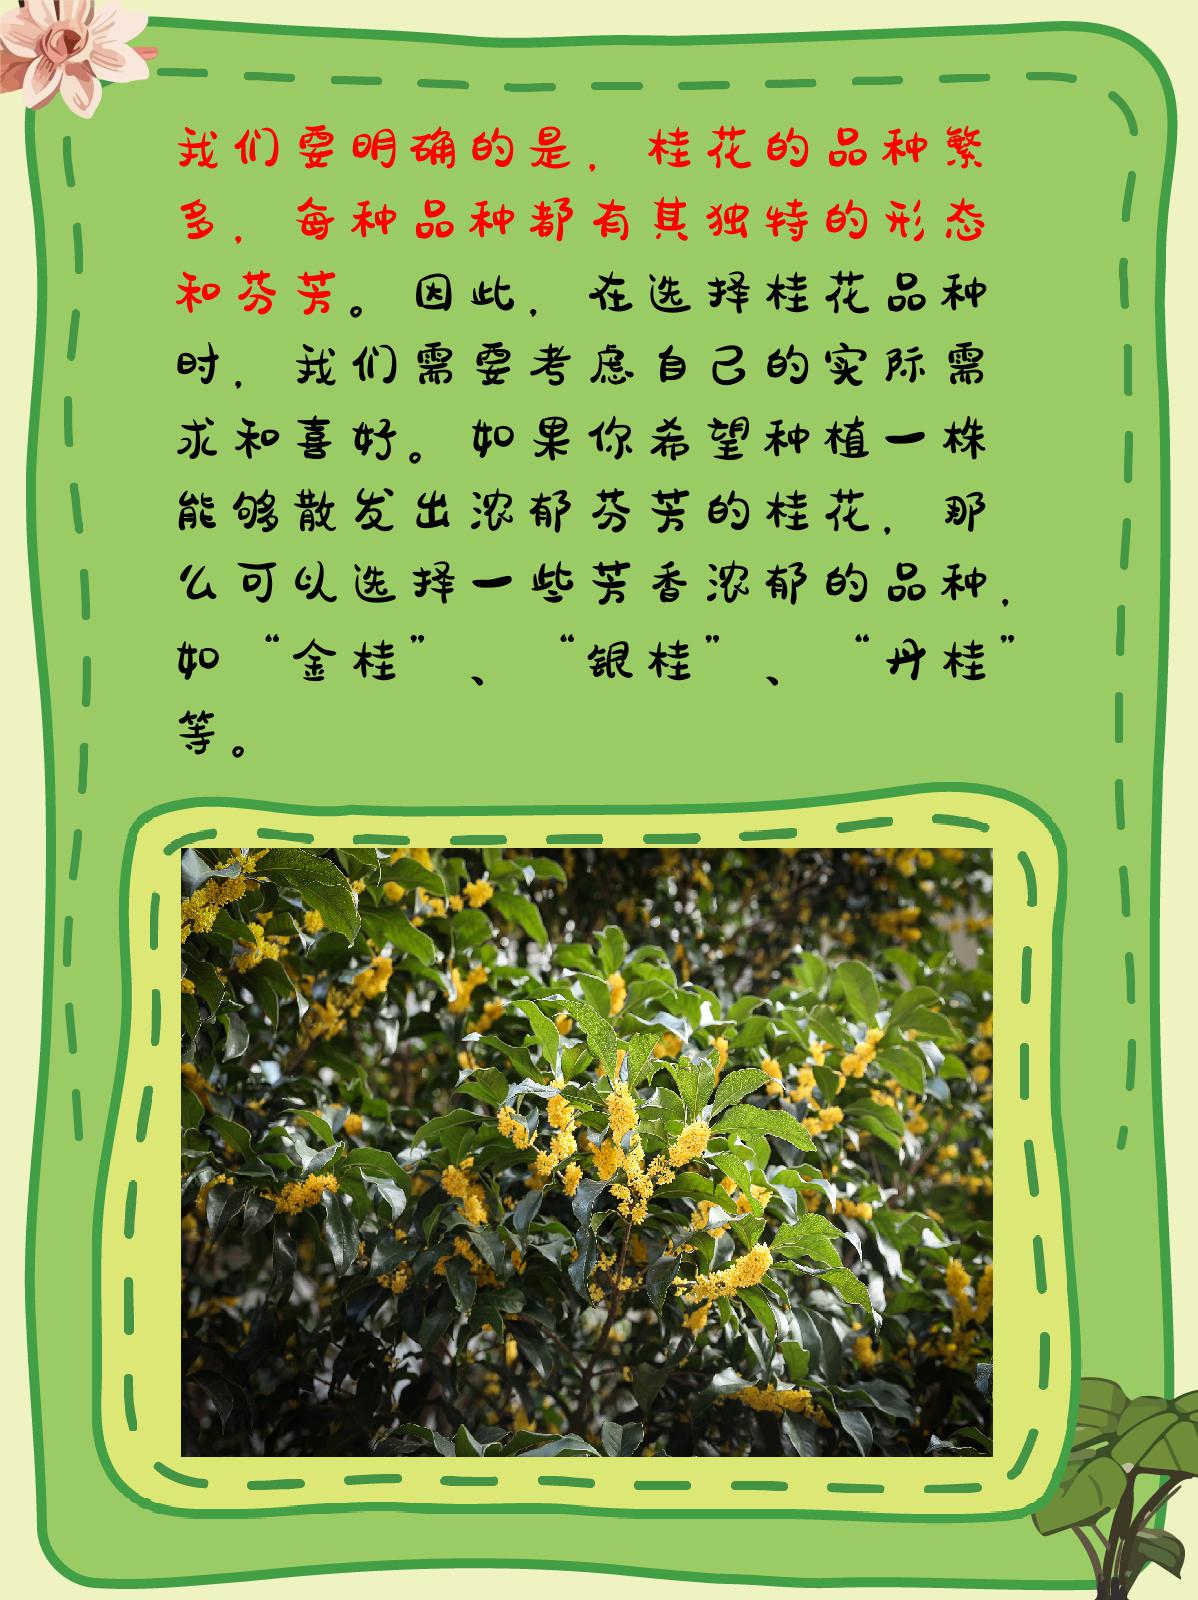 我们要明确的是，桂花的品种繁
多，每种品种都有其独特的形态
和芬芳。因此，在选择桂花品种
时，我们需要考虑自己的实际需
求和喜好。如果你希望种植一株
能够散发出浓郁芬芳的桂花，那
么可以选择一些芳香浓郁的品种，
如“金桂”、“银桂”、“丹桂”
等。